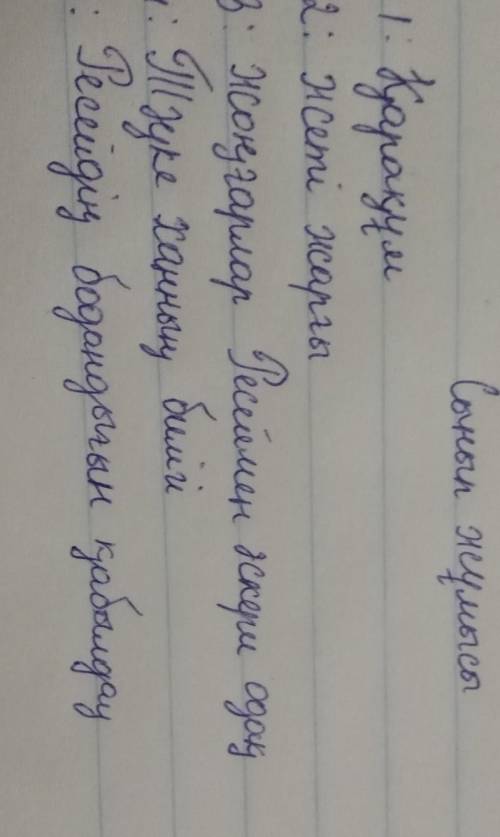 Сынып жұмысы
1: Қарақұм
2: Жеті жарғы
3: Жоңғарлар Ресеймен әскери одақ
: Тәуке ханның билігі
: Ресейдің бодандығын қабылдау